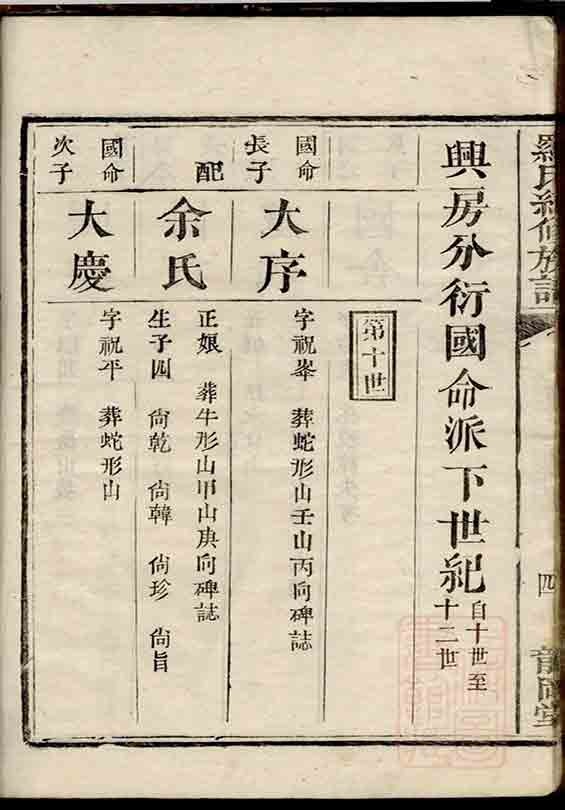 羅氏續修族譜
四
興房分衍國命派下世紀
自十世至
十二世
第十世
國命
長子
大序
字祝峯 葬蛇形山壬山丙向碑誌
配
余氏
正娘 葬牛形山甲山庚向碑誌
生子四 尙乾 尙韓 尙珍 尙旨
國命
次子
大慶
字祝平 葬蛇形山